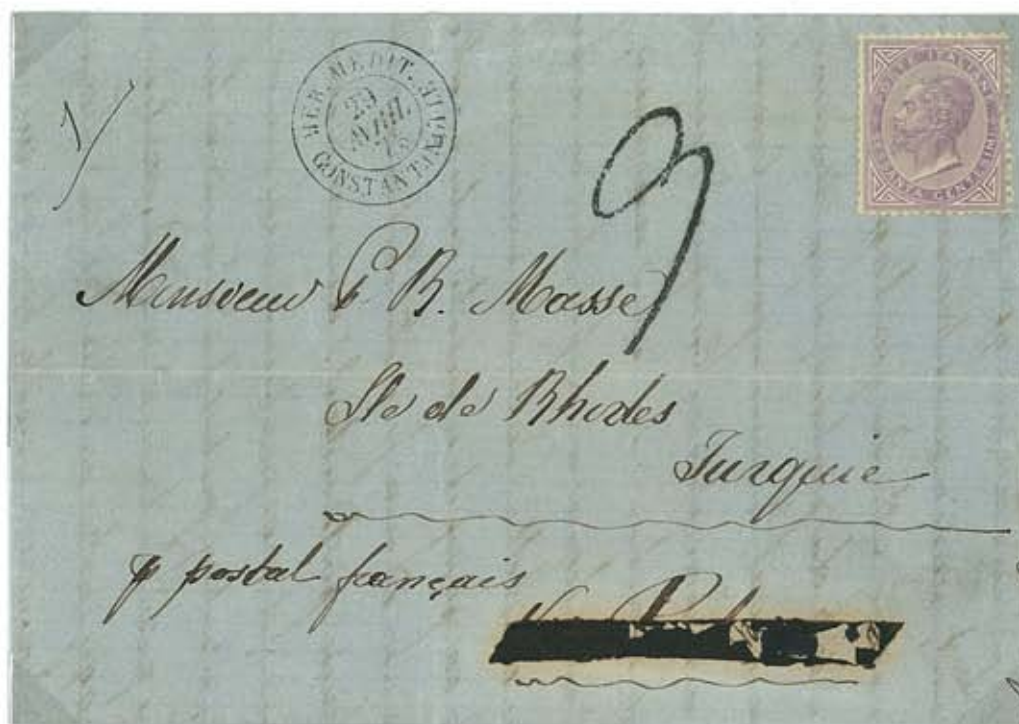 1/
MER. MEDIT.
23
AVRIL
CONSTANTINOPLE
9
POSTE ITALIANE
SESSANTA CENTESIMI
Monsieur P. B. Masse
Ile de Rhodes
Turquie
p postal français